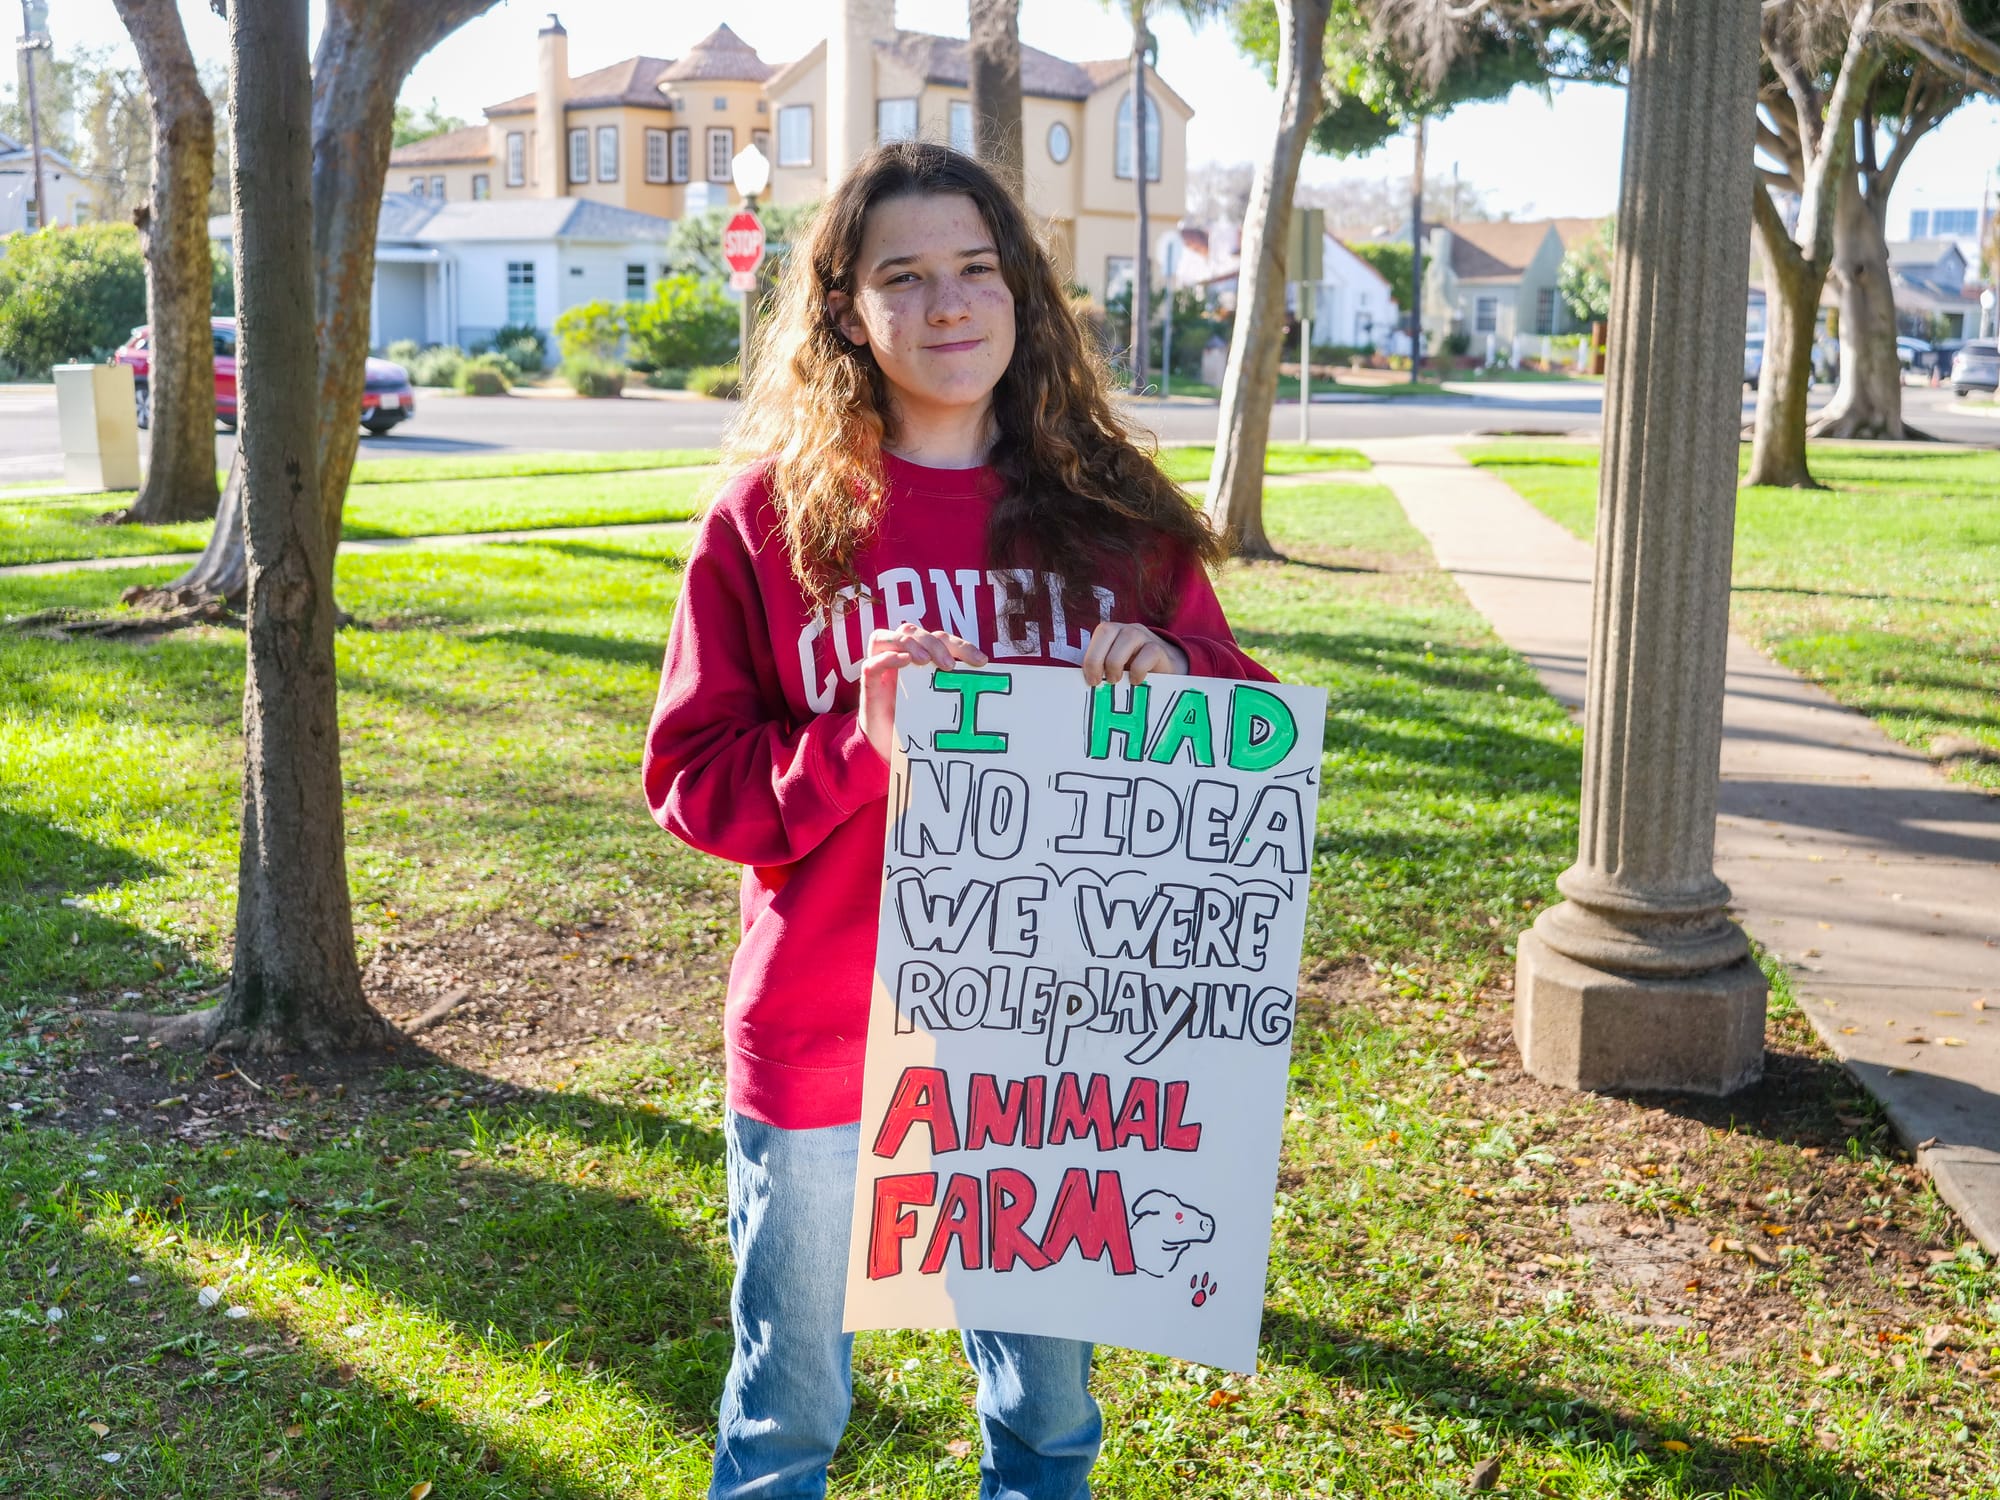 STOP
CORNELL
I HAD
NO IDEA
WE WERE
ROLEPLAYING
ANIMAL
FARM